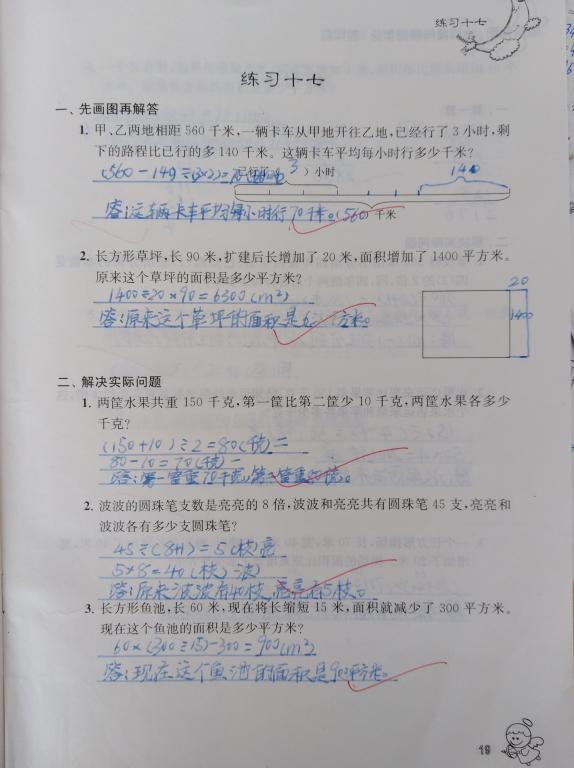 练习十七
练习十七
一、先画图再解答
1. 甲、乙两地相距 560 千米,一辆卡车从甲地开往乙地,已经行了 3 小时,剩
下的路程比已行的多 140 千米。这辆卡车平均每小时行多少千米?
(560-140)÷(3×2)=
已行了( 3 )小时
140
答:这辆卡车平均每小时行70千米。
(560)千米
2. 长方形草坪,长 90 米,扩建后长增加了 20 米,面积增加了 1400 平方米。
原来这个草坪的面积是多少平方米?
1400÷20×90=6300(m²)
20
1400
答:原来这个草坪的面积是
二、解决实际问题
1. 两筐水果共重 150 千克,第一筐比第二筐少 10 千克,两筐水果各多少
千克?
(150+10)÷2=80(千克)二
80-10=70(千克)一
答:第一筐重70千克,第二筐重80千克。
2. 波波的圆珠笔支数是亮亮的 8 倍,波波和亮亮共有圆珠笔 45 支,亮亮和
波波各有多少支圆珠笔?
45÷(8+1)=5(枝)亮
5×8=40(枝)波
答:原来波波有40枝,亮亮有5枝。
3. 长方形鱼池,长 60 米,现在将长缩短 15 米,面积就减少了 300 平方米。
现在这个鱼池的面积是多少平方米?
60×(300÷15)-300=900(m²)
答:现在这个鱼池的面积是900平方米。
19